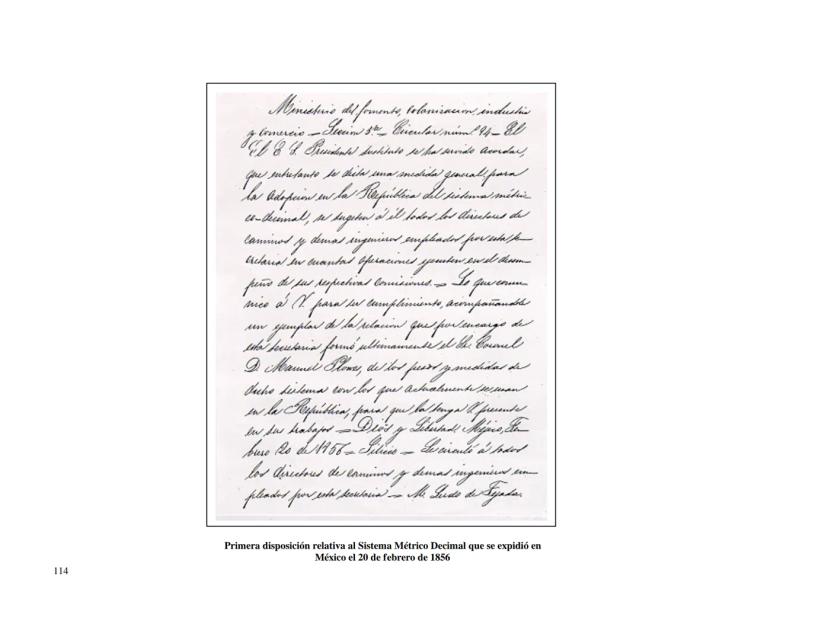 Ministerio del fomento, colonizacion, industria
y comercio — Seccion 3ª — Circular núm. 24 — El
El E. S. Presidente sustituto se ha servido acordar,
que entretanto se dicta una medida general para
la adopcion en la República del sistema métri-
co-decimal, se sugeten á él todos los directores de
caminos y demas ingenieros empleados por esta se-
cretaria en cuantas operaciones ejecuten en el desem-
peño de sus respectivas comisiones. — Lo que comu-
nico á V. para su cumplimiento, acompañandole
un ejemplar de la relacion que por encargo de
esta secretaria formó ultimamente el Sr. Coronel
D. Manuel Plowes, de los pesos y medidas de
dicho sistema con los que actualmente se usan
en la República, para que la tenga V. presente
en sus trabajos — Dios y Libertad. Mégico, Fe-
brero 20 de 1856 — Siliceo — Se circuló á todos
los directores de caminos y demas ingenieros em-
pleados por esta secretaria — M. Lerdo de Tejada.
Primera disposición relativa al Sistema Métrico Decimal que se expidió en
México el 20 de febrero de 1856
114